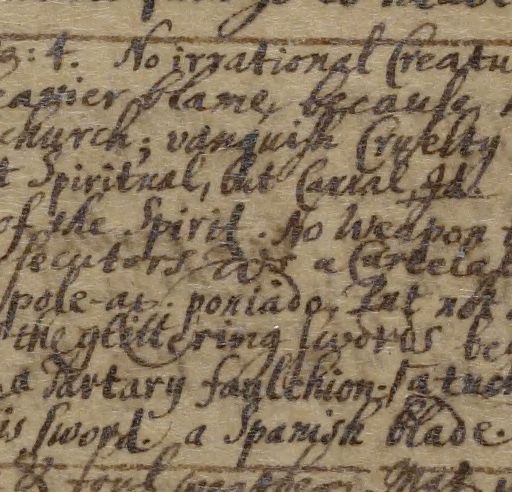 3: 4. No irrational Creatu
eavier blame, because
church; vanquish Cruelty
t Spiritual, but Carnal Id.
of the Spirit. No Weapon
secutors. Ws a Curtelax
pole-ax. poniado, But not
the glittering swords be
a Tartary faulchion. a tuck
is sword. a Spanish blade.
& foul weather. Mat